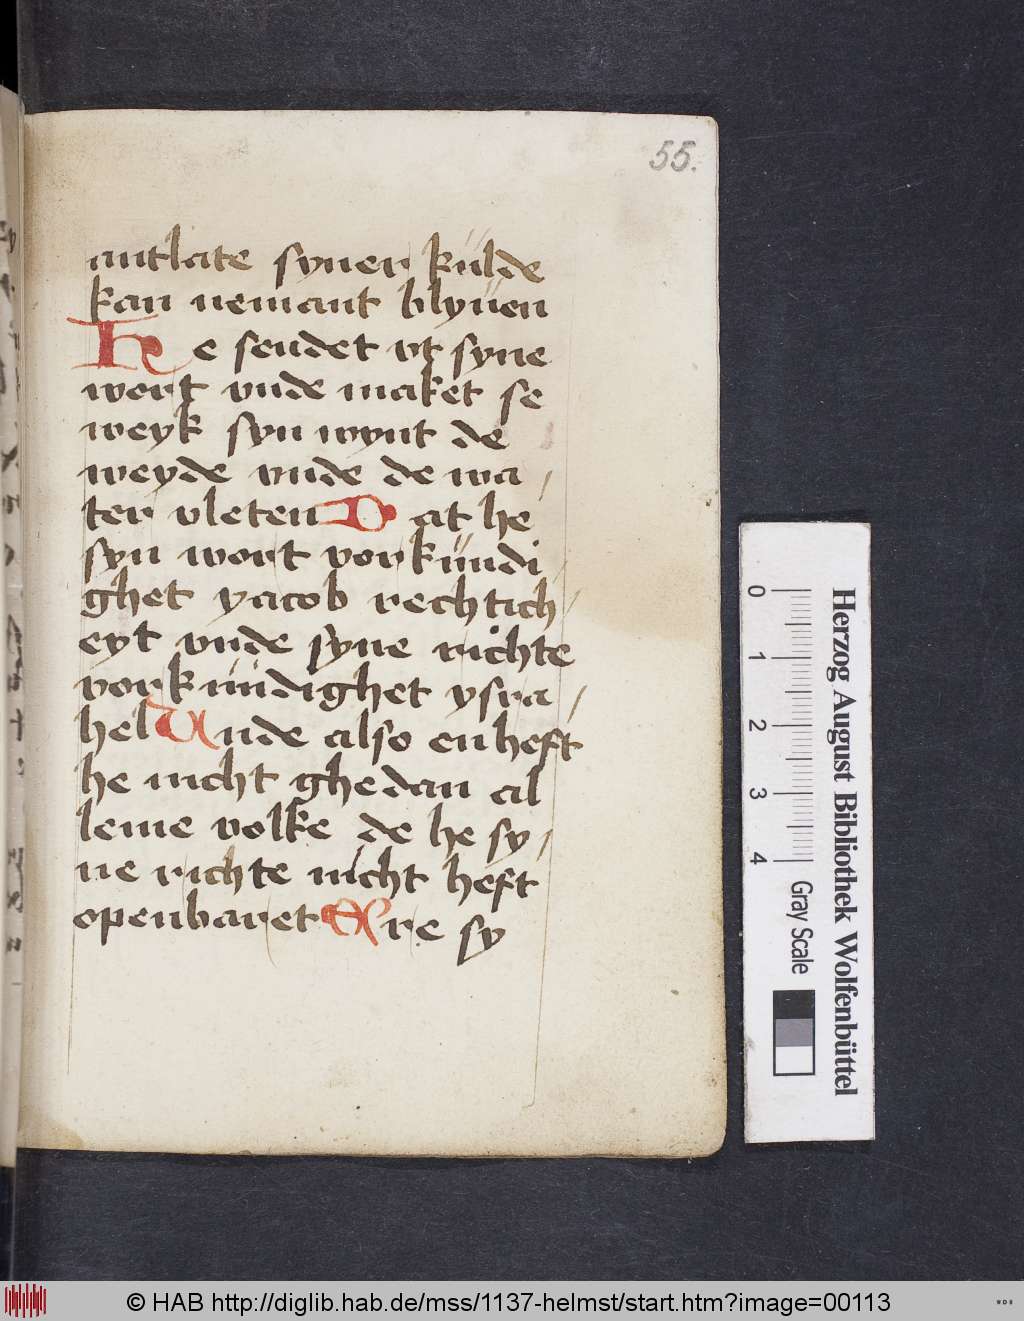 55.
antlate syner külde
kan nemant blyuen
He sendet vt syne
wort vnde maket se
weyk syn wynt de
weyde vnde de wa/
ter vleten Dat he
syn wort vorkündi
ghet yacob rechtich/
eyt vnde syne richte
vorkündighet ysra/
hel Unde also en heft
he nicht ghedan al
leme volke de he sy/
ne richte nicht heft
openbaret Ere sy
0 1 2 3 4
Gray Scale
Herzog August Bibliothek Wolfenbüttel
© HAB http://diglib.hab.de/mss/1137-helmst/start.htm?image=00113